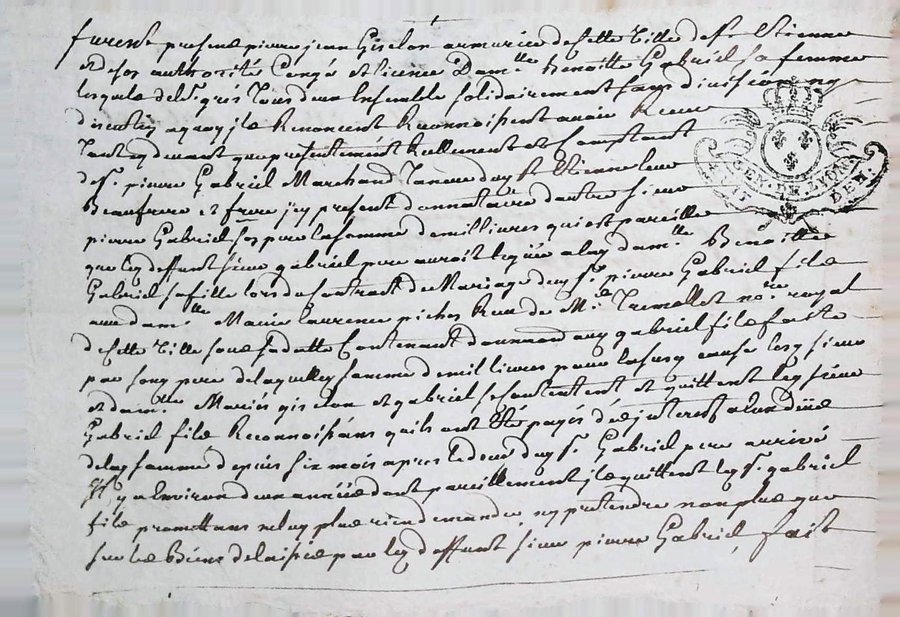 furent present pierre jean Giselon armurier de cette Ville de St Etienne
et de son authorité Congé et licence Dam.lle benoitte Gabriel sa femme
lesquels de leur grés tous deux Ensemble solidairement sans division ny
discution a quoy ils Renoncent Reconnoissent avoir Receu
tant cy devant que presentement Reellement et Comptant
de Sr pierre Gabriel Marchand Taneur dud St Etienne leur
Beaufrere et frere icy present donnataire d'autre Sieur
pierre Gabriel son pere la somme de mil livres qui est pareille
que led deffunt sieur gabriel pere auroit leguée a lad dam.lle Benoitte
Gabriel sa fille lors du Contract de Mariage dud Sr pierre Gabriel fils
avec dam.lle Marie laurence pichon Reçu de Me Tremollet no.re royal
de cette Ville sous sa datte Contenant donnation aud gabriel fils faite
par sond pere de laquelle somme de mil livres pour la susd cause lesd sieur
et dam.lle Mariés giselon et gabriel se contentent et quittent led sieur
Gabriel fils Reconnoissans qu'ils ont été payés des interest
de lad somme depuis six mois apres le deces dud Sr Gabriel pere arrivé
il y a Environ deux années dont pareillement ils quittent led Sr gabriel
fils promettans ne luy plus rien demander ny pretendre non plus que
sur les Biens delaissés par led deffunt sieur pierre Gabriel, fait
GEN. DE LYON
DEN.